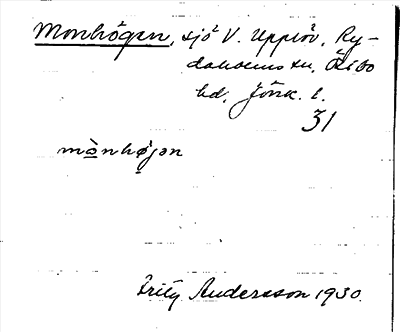 Monhögen, sjö V. Upplöv, Ry-
daholms sn, Östbo
hd, Jönk. l.
31
mònhø̀jən
Fritz Andersson 1930.